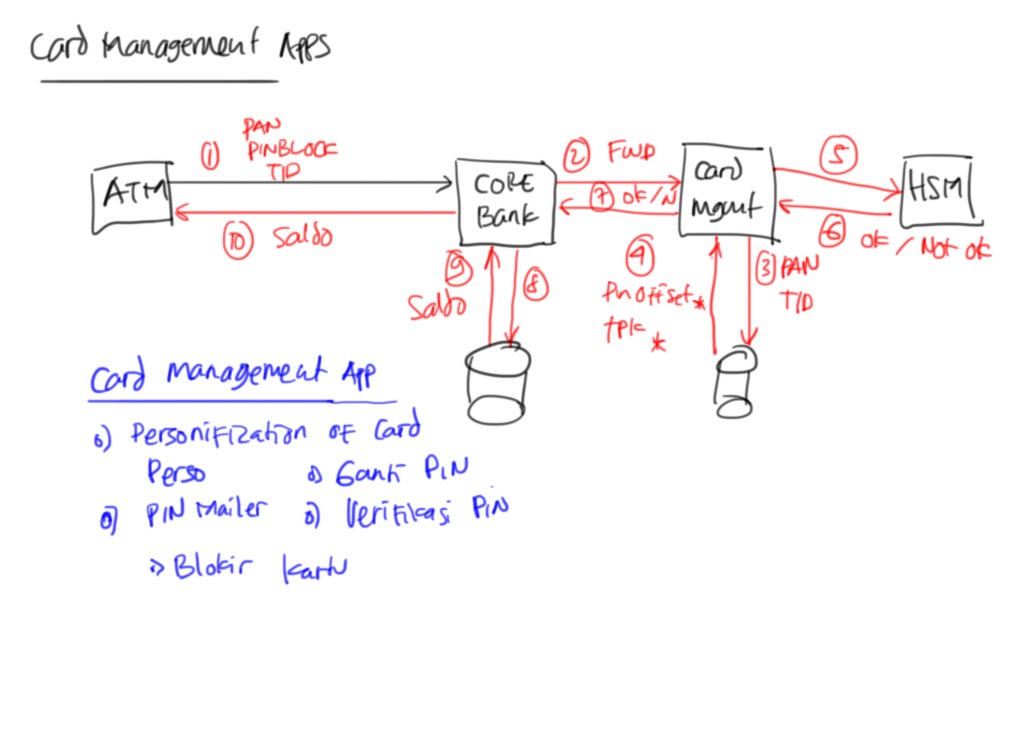 Card Management Apps
PAN
① PINBLOCK
TID
② FWD
⑤
ATM
CORE
Bank
Card
Mgmt
HSM
⑦ OK/N
⑩ Saldo
⑥ OK / Not OK
⑨
Saldo
⑧
④
Pin Offset *
tpk *
③ PAN
TID
Card Management App
o) Personifization of Card
Perso
o) Ganti PIN
o) PIN Mailer
o) Verifikasi Pin
o) Blokir kartu